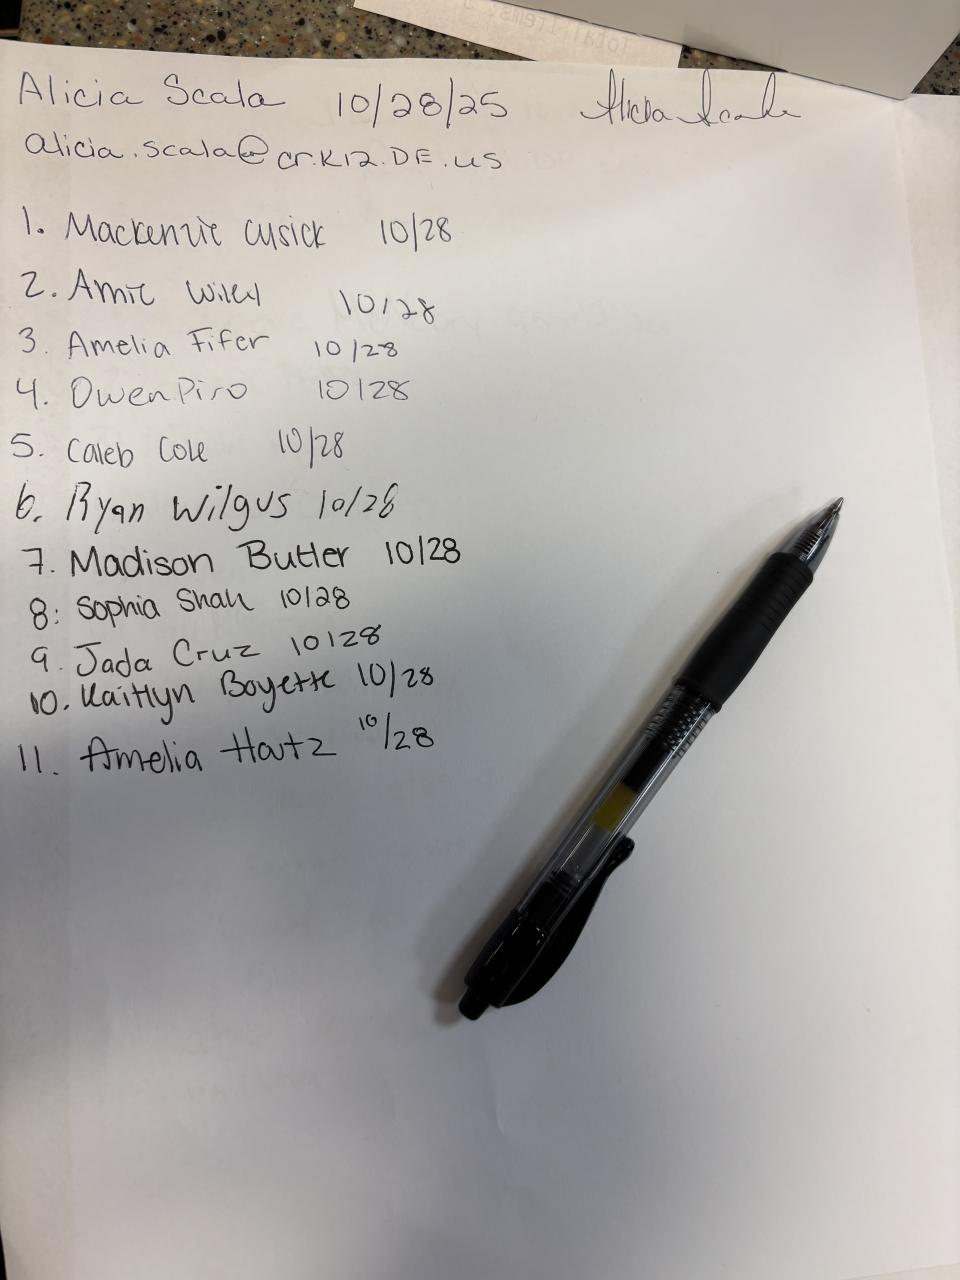 Alicia Scala 10/28/25 Alicia Scala
alicia.scala@cr.k12.DE.us
1. Mackenzie Cusick 10/28
2. Amie 10/28
3. Amelia Fifer 10/28
4. Owen Piro 10/28
5. Caleb Cole 10/28
6. Ryan Wilgus 10/28
7. Madison Butler 10/28
8: Sophia Shah 10/28
9. Jada Cruz 10/28
10. Kaitlyn Boyette 10/28
11. Amelia 10/28